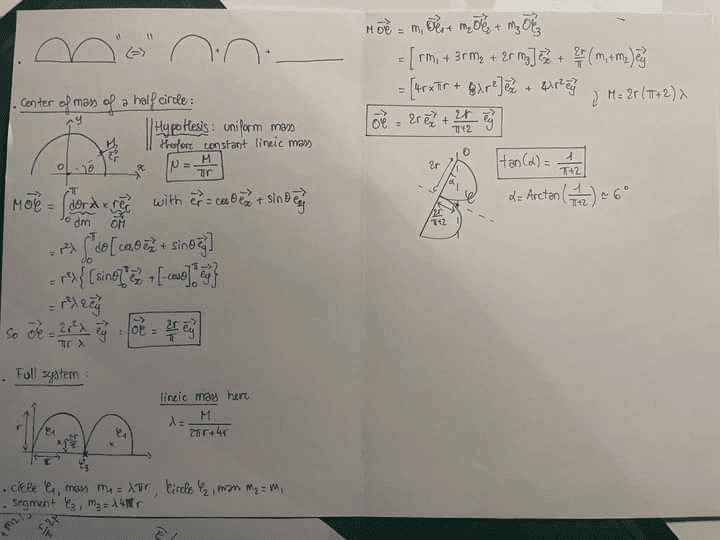 " " <=> + +
. Center of mass of a half circle:
y
M
e_r→
O
θ
x
Hypothesis: uniform mass
therefore constant lineic mass
μ = M/πr
M OC→ = ∫_0^π dθ r λ × r e_r→ with e_r→ = cosθ e_x→ + sinθ e_y→
dm OM→
= r²λ ∫_0^π dθ [cosθ e_x→ + sinθ e_y→]
= r²λ { [sinθ]_0^π e_x→ + [-cosθ]_0^π e_y→ }
= r²λ 2 e_y→
So OC→ = 2r²λ/πrλ e_y→ : OC→ = 2r/π e_y→
. Full system:
r
C₁
C₃
lineic mass here
λ = M/(2πr+4r)
. circle C₁, mass m₁ = λπr, circle C₂, mass m₂ = m₁
. segment C₃, m₃ = λ4r
M OC→ = m₁ OC₁→ + m₂ OC₂→ + m₃ OC₃→
= [rm₁ + 3rm₂ + 2rm₃] e_x→ + 2r/π (m₁+m₂) e_y→
= [4r×πr + 8λr²] e_x→ + 4λr² e_y→ ; M = 2r(π+2)λ
OC→ = 2r e_x→ + 2r/(π+2) e_y→
O
2r
α
C
2r/(π+2)
tan(α) = 1/(π+2)
α = Arctan(1/(π+2)) ≈ 6°